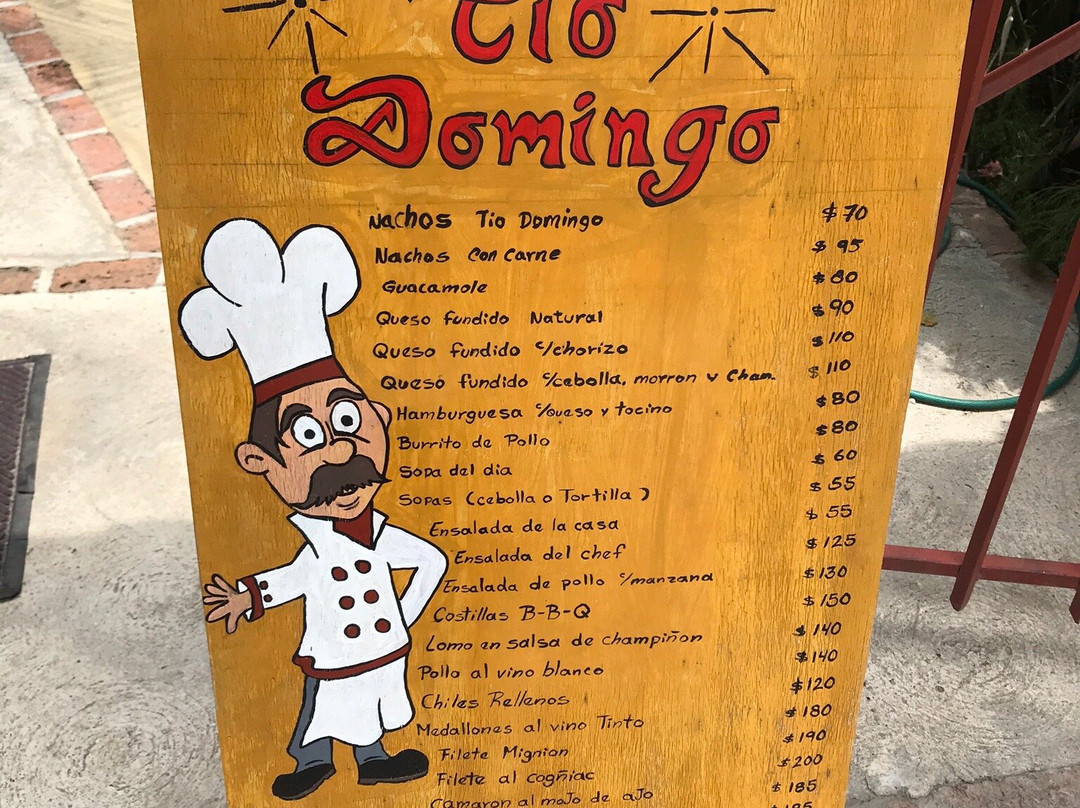 Tio
Domingo
Nachos Tio Domingo $70
Nachos con carne $95
Guacamole $80
Queso fundido Natural $90
Queso fundido c/chorizo $110
Queso fundido c/cebolla, morron y Cham. $110
Hamburguesa c/queso y tocino $80
Burrito de Pollo $80
Sopa del dia $60
Sopas (cebolla o Tortilla) $55
Ensalada de la casa $55
Ensalada del chef $125
Ensalada de pollo c/manzana $130
Costillas B-B-Q $150
Lomo en salsa de champiñon $140
Pollo al vino blanco $140
Chiles Rellenos $120
Medallones al vino Tinto $180
Filete Mignion $190
Filete al cogñiac $200
Camaron al mojo de ajo $185